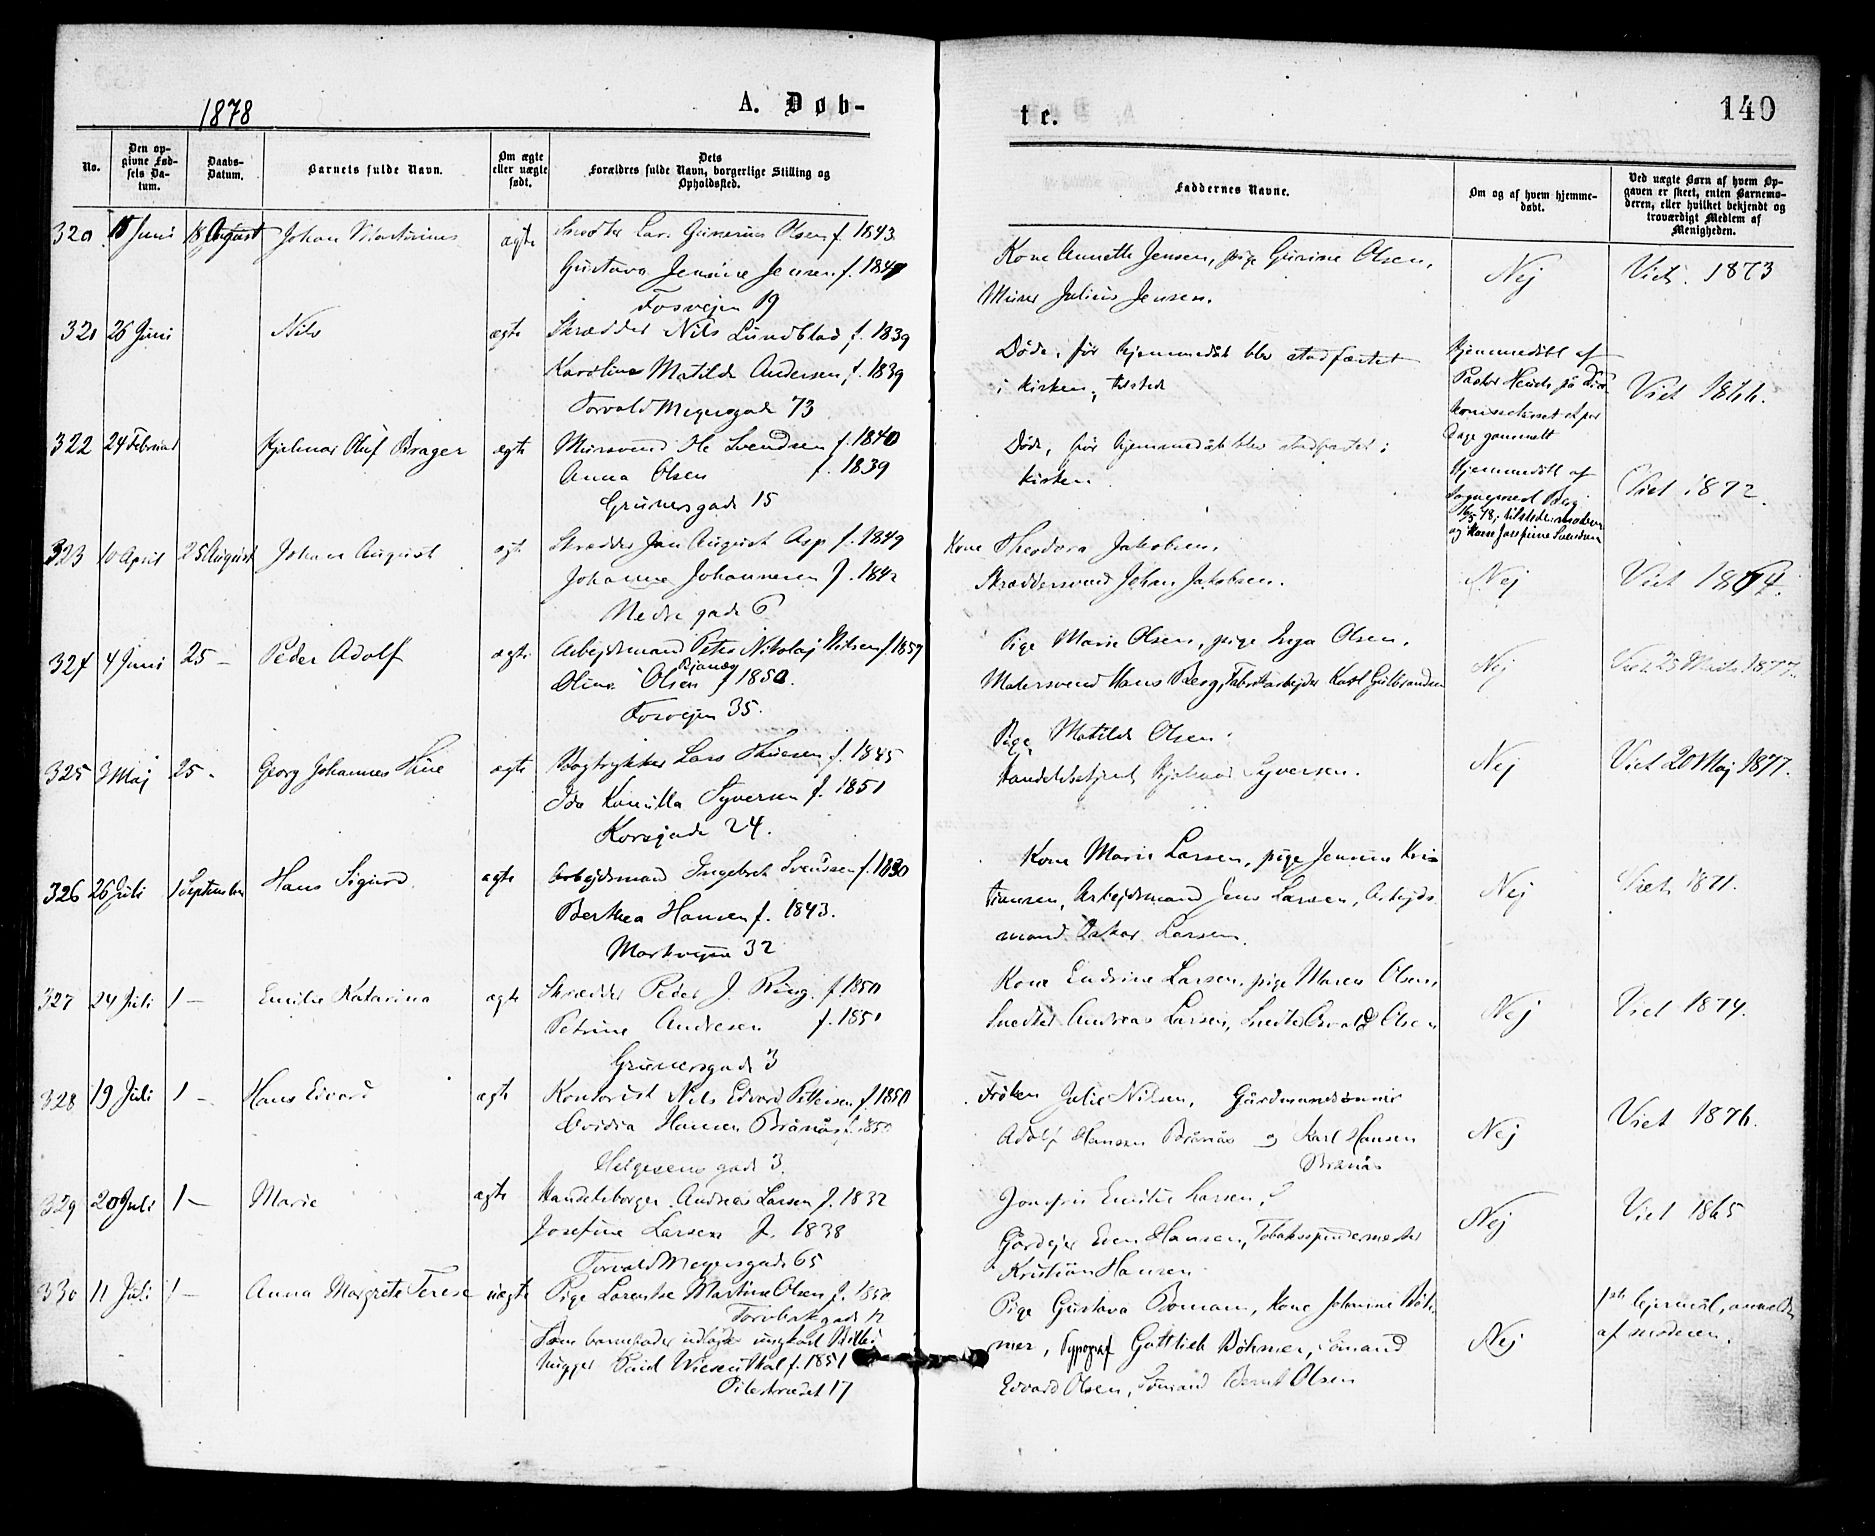 1878
A. Døb-
te.
140
No.
Den op-
givne Fød-
sels Da-
tum.
Daabs-
Datum.
Barnets fulde Navn.
Om ægte
eller uægte
født.
Dets
Forældres fulde Navn, borgerlige Stilling og
Opholdssted.
Faddernes Navne.
Om og af hvem hjemme-
døbt.
Ved uægte Børn af hvem Op-
gaven er skeet, enten Barnemo-
deren, eller hvilket bekjendt og
troværdigt Medlem af
Menigheden.
320 Juni 18 August Johan Martinius ægte Olsen f. 1843
Gustava Jensine Jensen f.
Fosvejen 19
Kone Annette Jensen, pige Olsen,
Murer Julius Jensen.
Nej
Viet. 1873
321 26 Juni Nils ægte Skrædder Nils Lundblad f. 1839
Karoline Matilde Andersen f. 1839
Torvald Meyersgade 73
Døde, før hjemmedåb blev stadfæstet
i kirken,
Hjemmedøbt af
Pastor på
gammelt
Viet 1866.
322 24 Februar Hjalmar Oluf Brager ægte Mursvend Svendsen f. 1840
Anna Olsen f. 1839
Grünersgade 15
Døde, før hjemmedåb blev stadfæstet i
kirken
Hjemmedøbt af
og Josefine Svendsen
Viet 1872.
323 10 April 25 August Johan August ægt Skrædder Jan August Asp f. 1849
Johanne Johannesen f. 1842
Nedregade 6
Kone Theodora Jakobsen,
Skræddersvend Johan Jakobsen.
Nej
Viet
324 4 Juni 25 — Peder Adolf ægte Arbejdsmand Peter Nikolaj Nilsen f.
Oline Olsen f 1850.
Fosvejen 35.
Pige Marie Olsen, pige Inga Olsen,
Malersvend Hans Berg, Fabrikarbejder Karl Gulbrandsen
Nej
Viet 25 1877.
325 3 Maj 25 - Georg Johannes Thue ægte Bogtrykker Lars Thuesen f. 1845
Ida Kamilla Syversen f. 1851
Korsgade 24.
Pige Matilde Olsen.
Handelsbetjent Hjalmar Syversen.
Nej
Viet 20 Maj 1877.
326 26 Juli 1 September Hans Sigurd. ægte Arbejdsmand Ingebret Svendsen f.
Berthea Hansen f. 1843.
Markvejen 32
Kone Marie Larsen, pige Jensine Kris
tiansen, Arbejdsmand Jens Larsen, Arbejds
mand Oskar Larsen.
Nej
Viet 1871.
327 24 Juli 1 — Emilie Katarina ægte Skrædder Peder J. Ring. f. 1850
Petrine Andresen f. 1851
Grünersgade 3
Kone Larsen, pige Maren Olsen,
Snedker Andreas Larsen, Snedker Osvald Olsen
Nej
Viet 1874.
328 19 Juli 1 — Hans Edvard ægte Kontorist Nils Edvard Pettersen f. 1850
Ovidia Hansen Brånås f. 1850
Helgesens gade 3.
Frøken Julie Nilsen, Gårdmandssønner
Adolf Hansen Brånås og Karl Hansen
Brånås
Nej
Viet 1876.
329 20 Juli 1 — Marie ægte Handelsborger Andreas Larsen f. 1832
Josefine Larsen f. 1838
Torvald Meyersgade 65
Jomfru Emilie Larsen,
Gårdejer Even Hansen, Tobaksspindermester
Kristian Hansen
Nej
Viet 1865
330 11 Juli 1 — Anna Margrete Terese uægte Pige Lorentse Martine Olsen f. 1850
Torvbakgade
Som barnefader udlagt ungkarl Billed
hugger Paul Wiesenthal f. 1851
Pilestrædet 17
Pige Gustava Boman, Kone Johanne Böh
mer, Typograf Gottlieb Böhmer, Sömand
Edvard Olsen, Sömand Bernt Olsen
Nej
lejermål, anmeldt
af moderen.